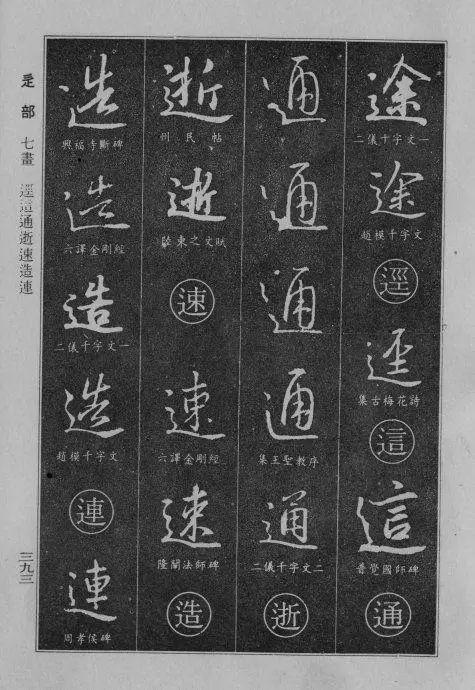 辵部 七畫 逕這通逝速造連
三九三
途
二儀千字文一
途
趙模千字文
逕
逕
集古梅花詩
這
這
普覺國師碑
通
通
通
通
通
集王聖教序
通
二儀千字文二
逝
逝
州民帖
逝
陸柬之文賦
速
速
六譯金剛經
速
隆闡法師碑
造
造
興福寺斷碑
造
六譯金剛經
造
二儀千字文一
造
趙模千字文
連
連
周孝侯碑